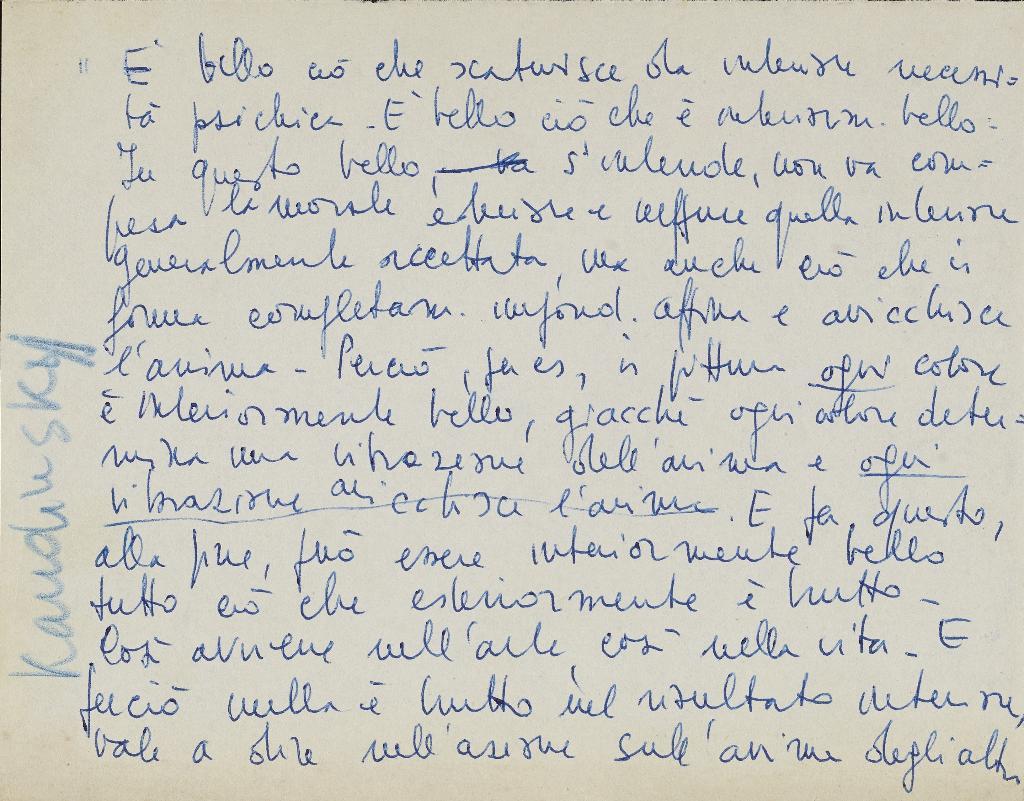 " E' bello ciò che scaturisce da interiore necessi=
tà psichica - E' bello ciò che è interiorm. bello-
In questo bello, s'intende, non va com=
presa la morale esteriore e neppure quella interiore
generalmente accettata, ma anche ciò che in
forma completam. improd. affina e arricchisce
l'anima - Perciò, per es, in pittura ogni colore
è interiormente bello, giacché ogni colore deter=
mina una vibrazione dell'anima e ogni
vibrazione arricchisce l'anima. E per questo,
alla fine, può essere interiormente bello
tutto ciò che esteriormente è brutto -
Così avviene nell'arte, così nella vita - E
perciò nulla è brutto nel risultato interiore,
vale a dire nell'azione sull'anima degli altri
Kandinsky